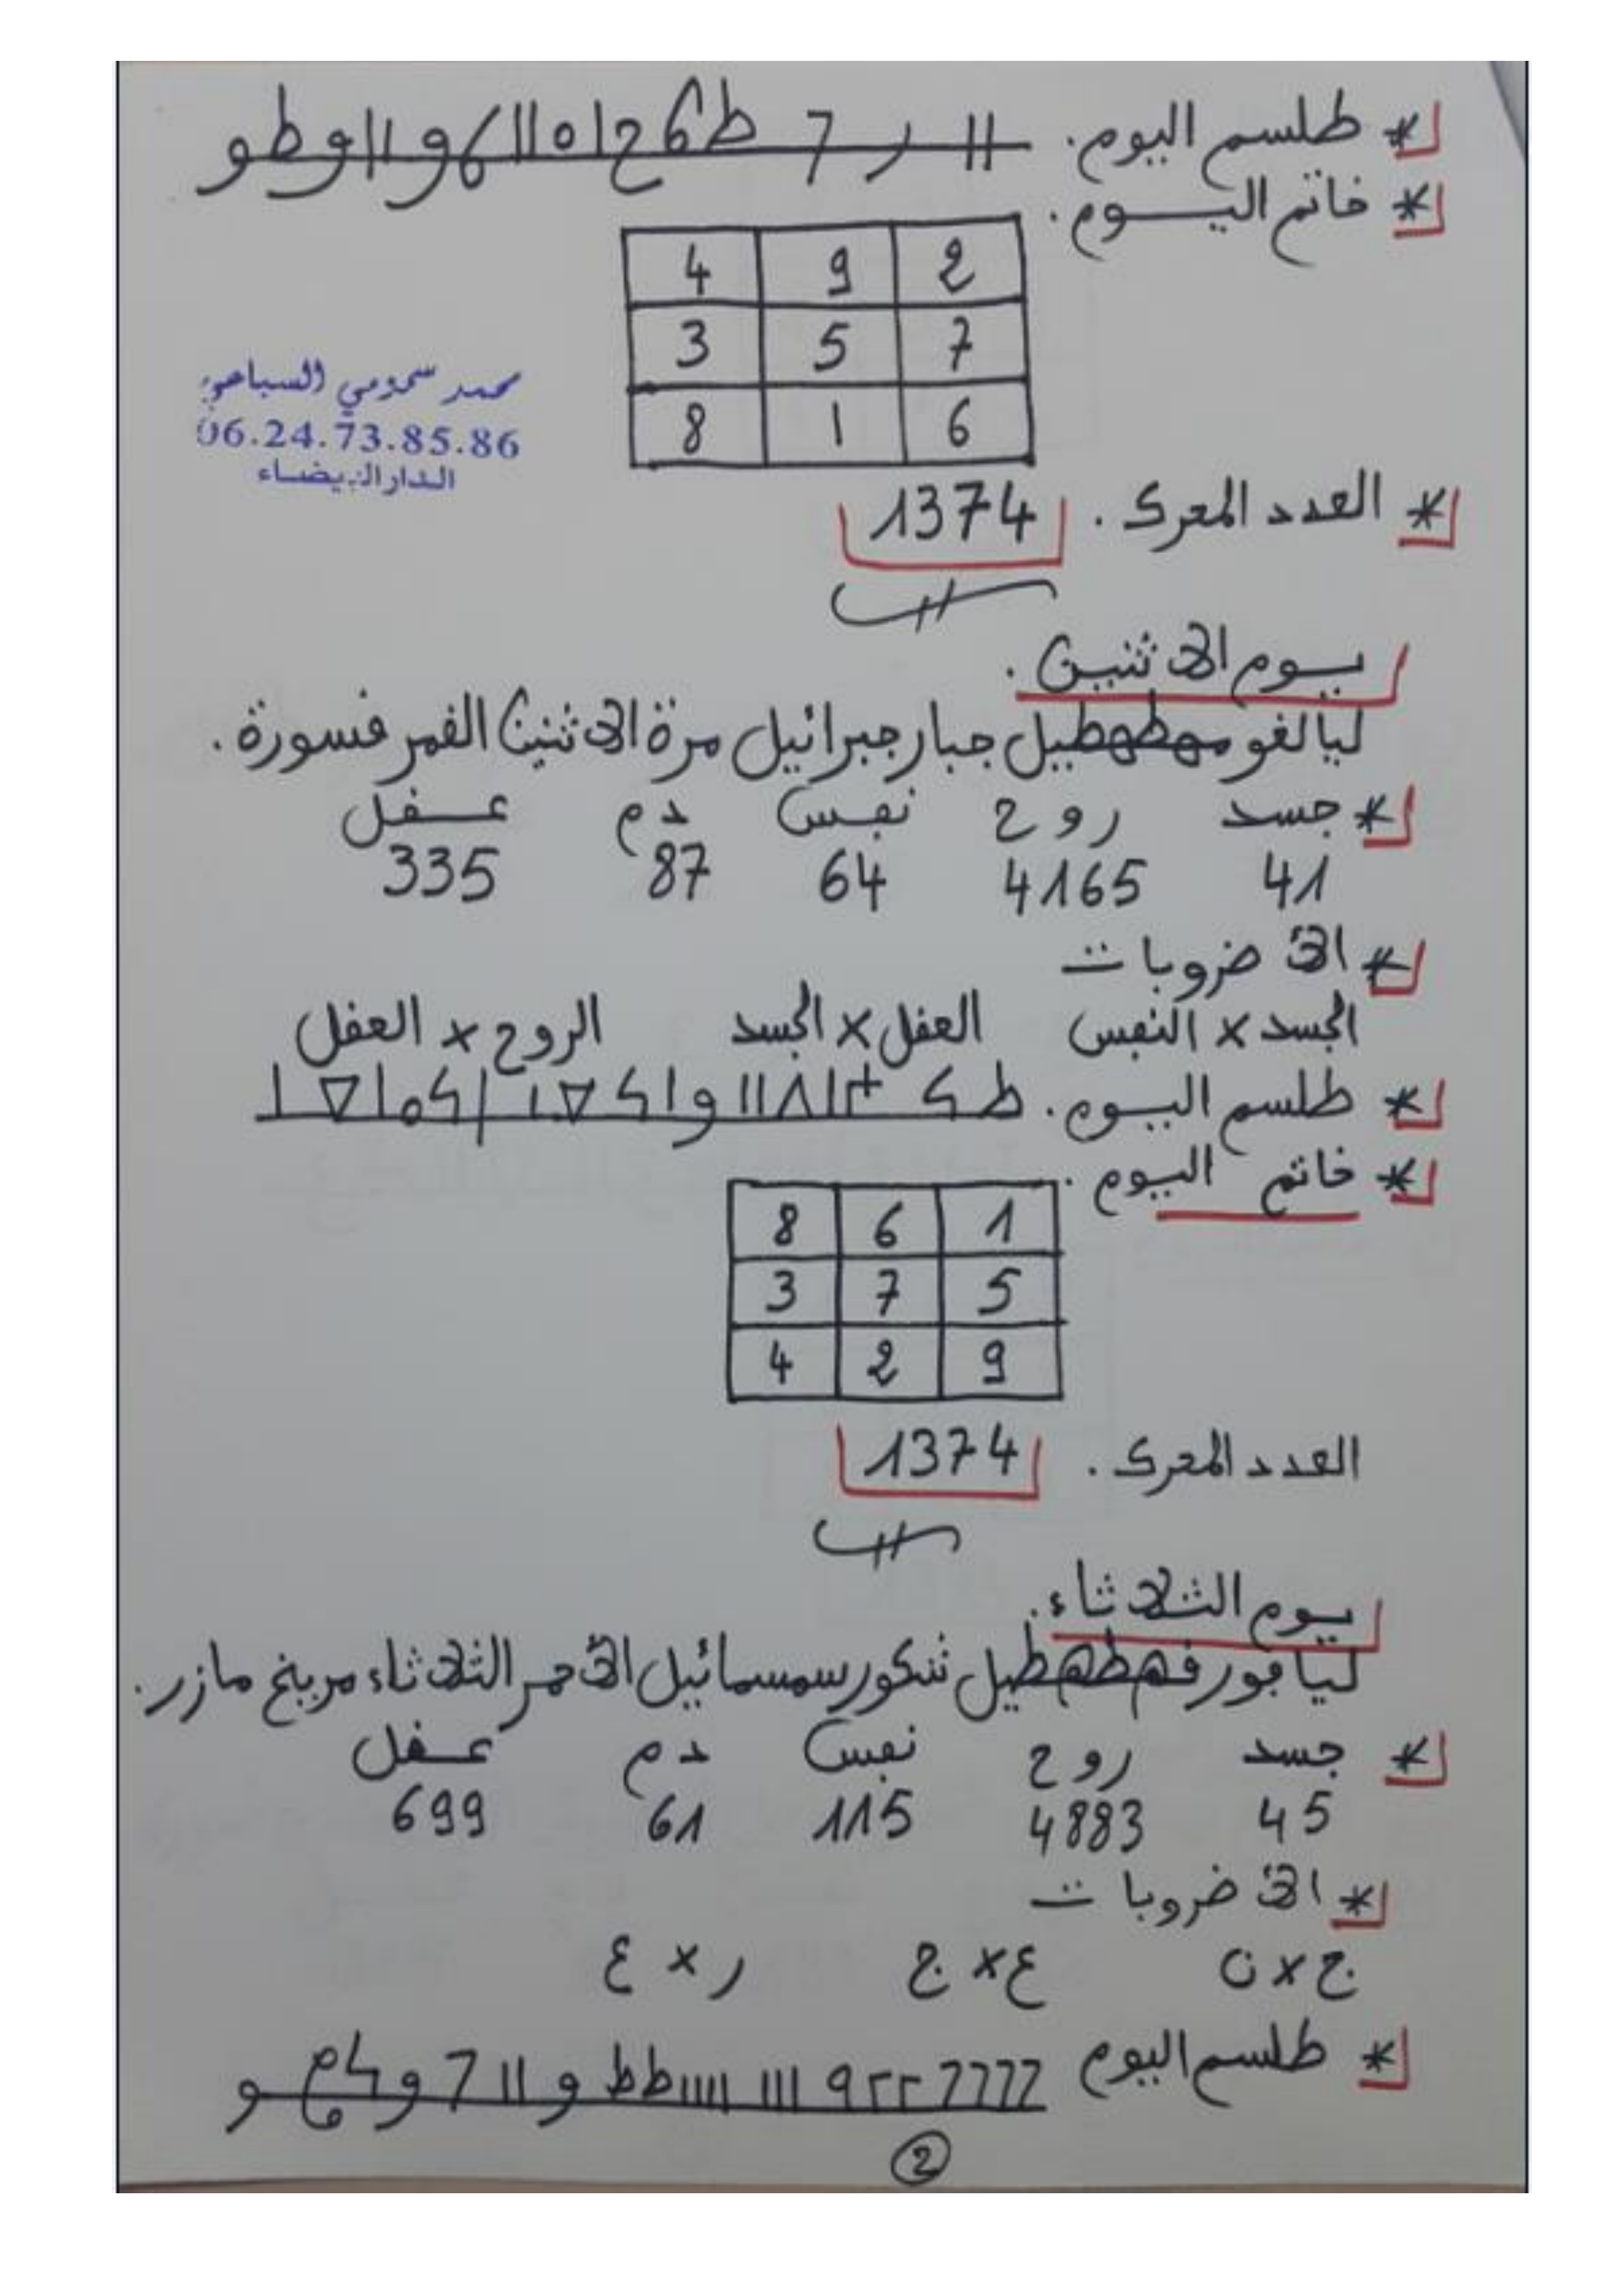 * طلسم اليوم.
* خاتم اليوم.
4 9 2
3 5 7
8 1 6
محمد سمومي السباعي
06.24.73.85.86
الدار البيضاء
* العدد المحرك. 1374
يوم الاثنين.
ليالغو مهطهطيل جبار جبرائيل مرة الاثنين القمر فسورة.
* جسد روح نفس دم عقل
41 4165 64 87 335
* الأضروبات
الجسد × النفس العقل × الجسد الروح × العقل
* طلسم اليوم.
* خاتم اليوم.
8 6 1
3 7 5
4 2 9
العدد المحرك. 1374
يوم الثلاثاء.
ليافور فهطهطيل شكور سمسمائيل الأحمر الثلاثاء مريخ مازر.
* جسد روح نفس دم عقل
45 4883 115 61 699
* الأضروبات
ج × ن ع × ج ر × ع
* طلسم اليوم
2